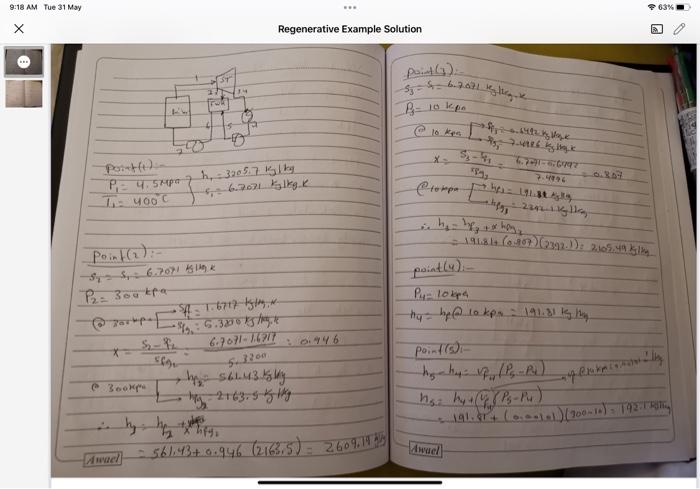 9:18 AM Tue 31 May
63%
Regenerative Example Solution
1
ST
2
3
FWH
6
5
7
Point(1):-
P₁ = 4.5 Mpa
T₁ = 400°C
h₁ = 3205.7 kJ/kg
s₁ = 6.7071 kJ/kg.K
Point(2):-
S₂ = S₁ = 6.7071 kJ/kg.K
P₂ = 300 kpa
@ 300 kpa
Sf₂ = 1.6717 kJ/kg.K
Sfg₂ = 5.3200 kJ/kg.K
x = S₂ - Sf₂ / Sfg₂ = 6.7071 - 1.6717 / 5.3200 = 0.946
@ 300 kpa
hf₂ = 561.43 kJ/kg
hfg₂ = 2163.5 kJ/kg
∴ h₂ = hf₂ + x hfg₂
= 561.43 + 0.946 (2163.5) = 2609.19 kJ/kg
Awael
Point(3):-
S₃ = S₁ = 6.7071 kJ/kg.K
P₃ = 10 kpa
@ 10 kpa
Sf₃ = 0.6492 kJ/kg.K
Sfg₃ = 7.4996 kJ/kg.K
x = S₃ - Sf₃ / Sfg₃ = 6.7071 - 0.6492 / 7.4996 = 0.807
@ 10 kpa
hf₃ = 191.81 kJ/kg
hfg₃ = 2392.1 kJ/kg
∴ h₃ = hf₃ + x hfg₃
= 191.81 + (0.807)(2392.1) = 2105.49 kJ/kg
point(4):-
P₄ = 10 kpa
h₄ = hf @ 10 kpa = 191.81 kJ/kg
Point(5):-
h₅ - h₄ = vf₄ (P₅ - P₄)
h₅ = h₄ + (vf₄)(P₅ - P₄)
= 191.81 + (0.00101)(300 - 10) = 192.1 kJ/kg
Awael